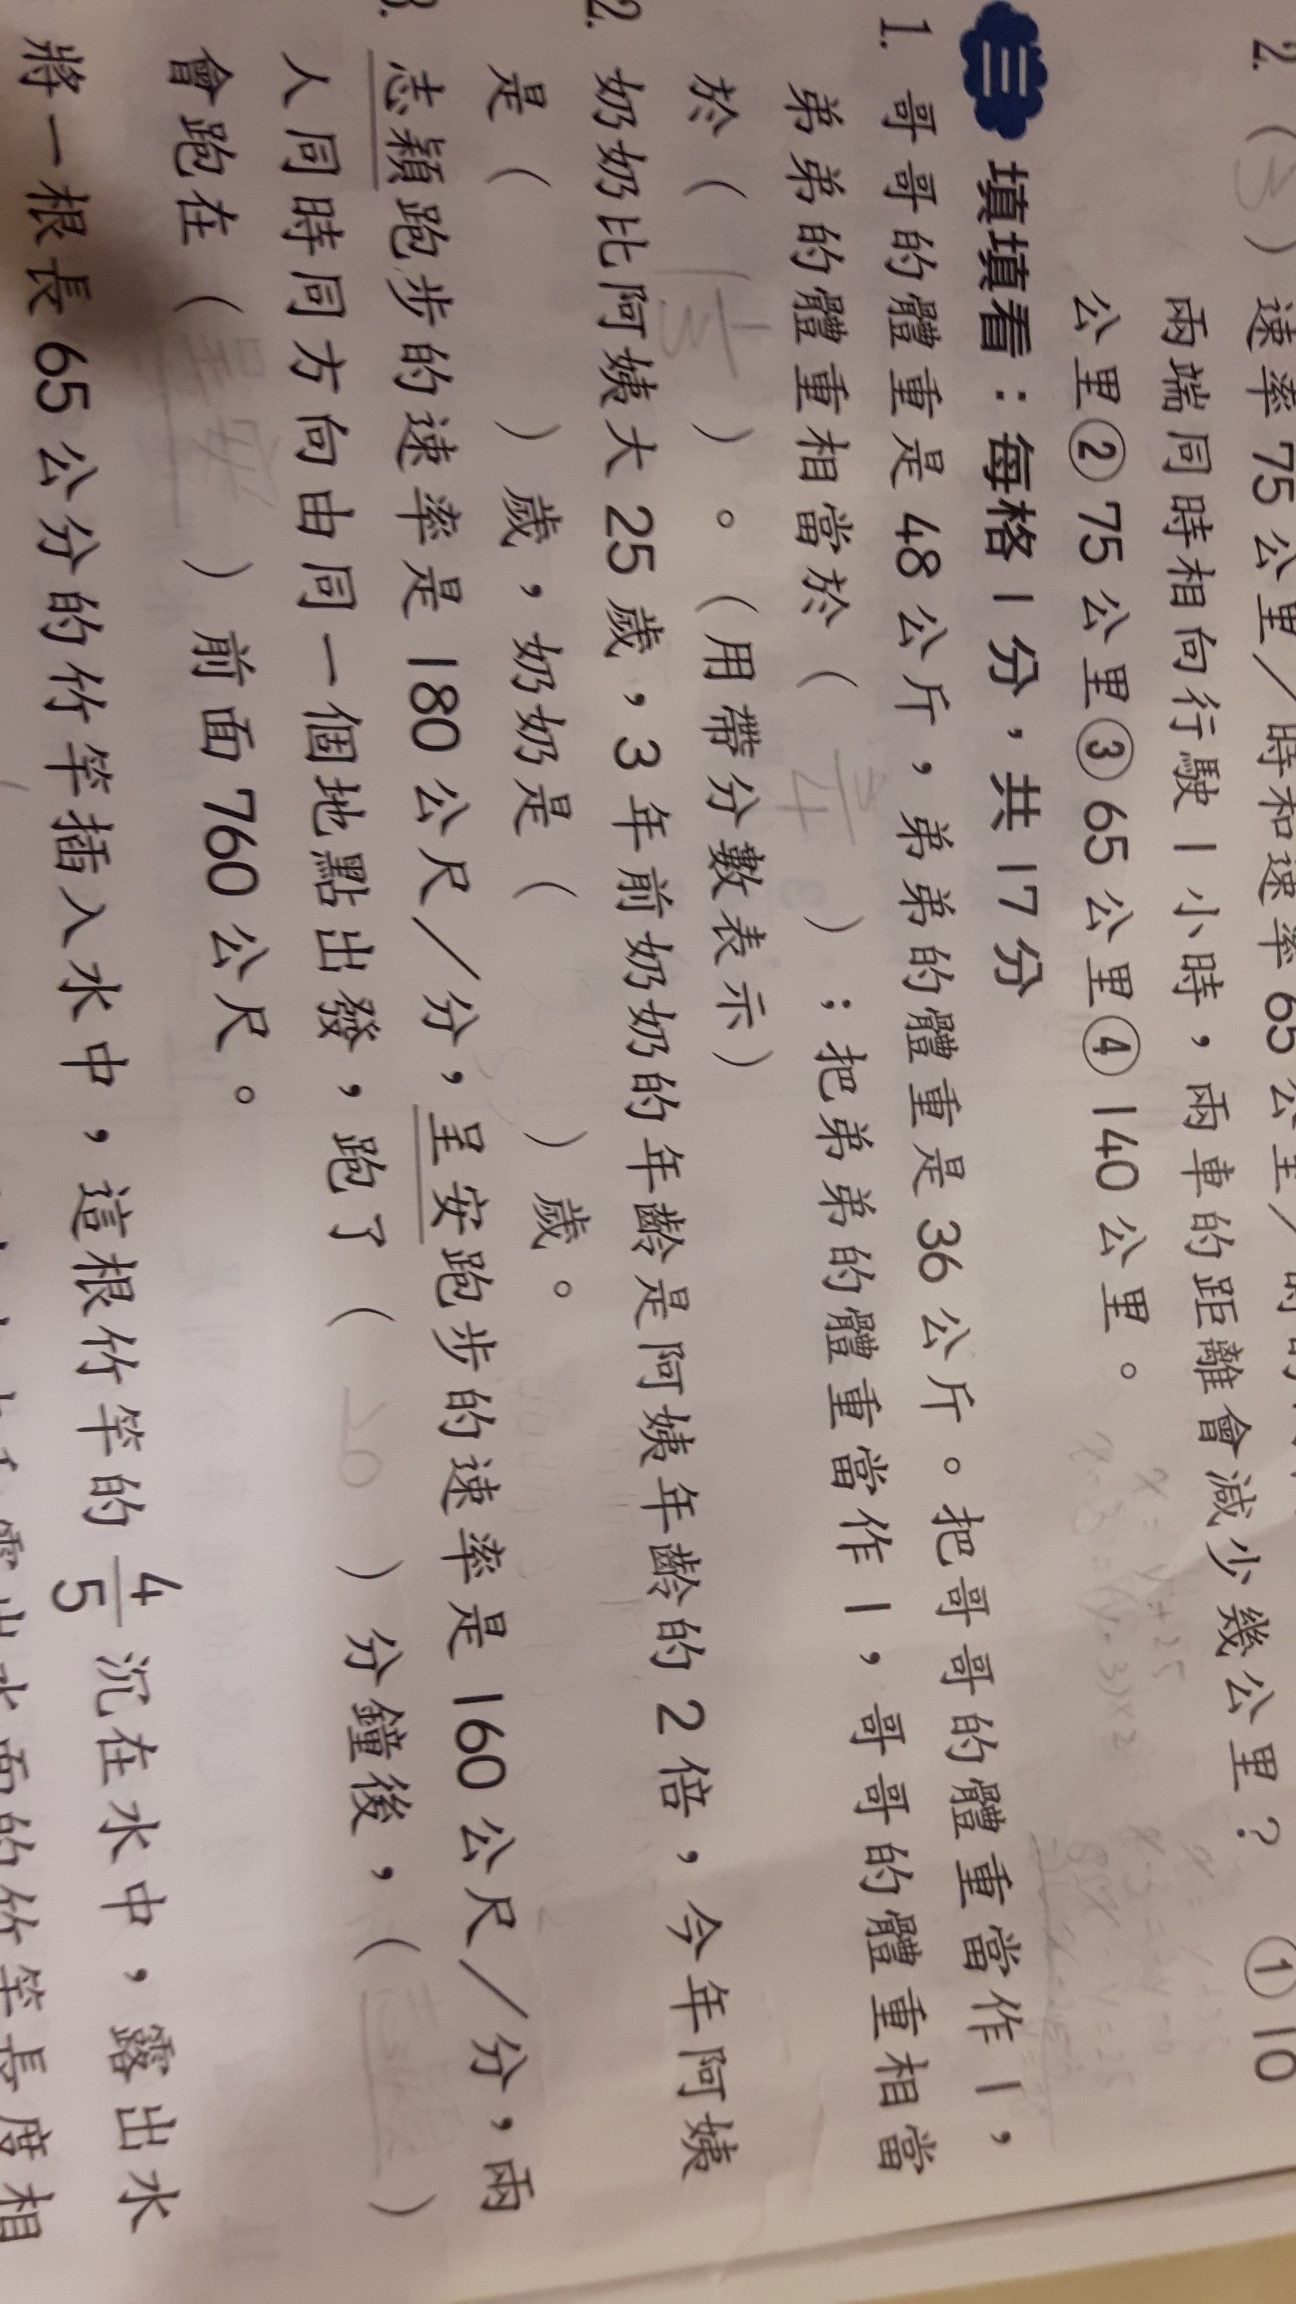 2. (3) 速率75公里／時和速率65公里／時的
兩端同時相向行駛1小時，兩車的距離會減少幾公里？ ①10
公里②75公里③65公里④140公里。
三 填填看：每格1分，共17分
1. 哥哥的體重是48公斤，弟弟的體重是36公斤。把哥哥的體重當作1，
弟弟的體重相當於（ 3/4 ）；把弟弟的體重當作1，哥哥的體重相當
於（ 1 1/3 ）。（用帶分數表示）
2. 奶奶比阿姨大25歲，3年前奶奶的年齡是阿姨年齡的2倍，今年阿姨
是（ ）歲，奶奶是（ ）歲。
3. 志穎跑步的速率是180公尺／分，呈安跑步的速率是160公尺／分，兩
人同時同方向由同一個地點出發，跑了（ 20 ）分鐘後，（ ）
會跑在（ 呈安 ）前面760公尺。
將一根長65公分的竹竿插入水中，這根竹竿的4/5沉在水中，露出水
面的竹竿長度相